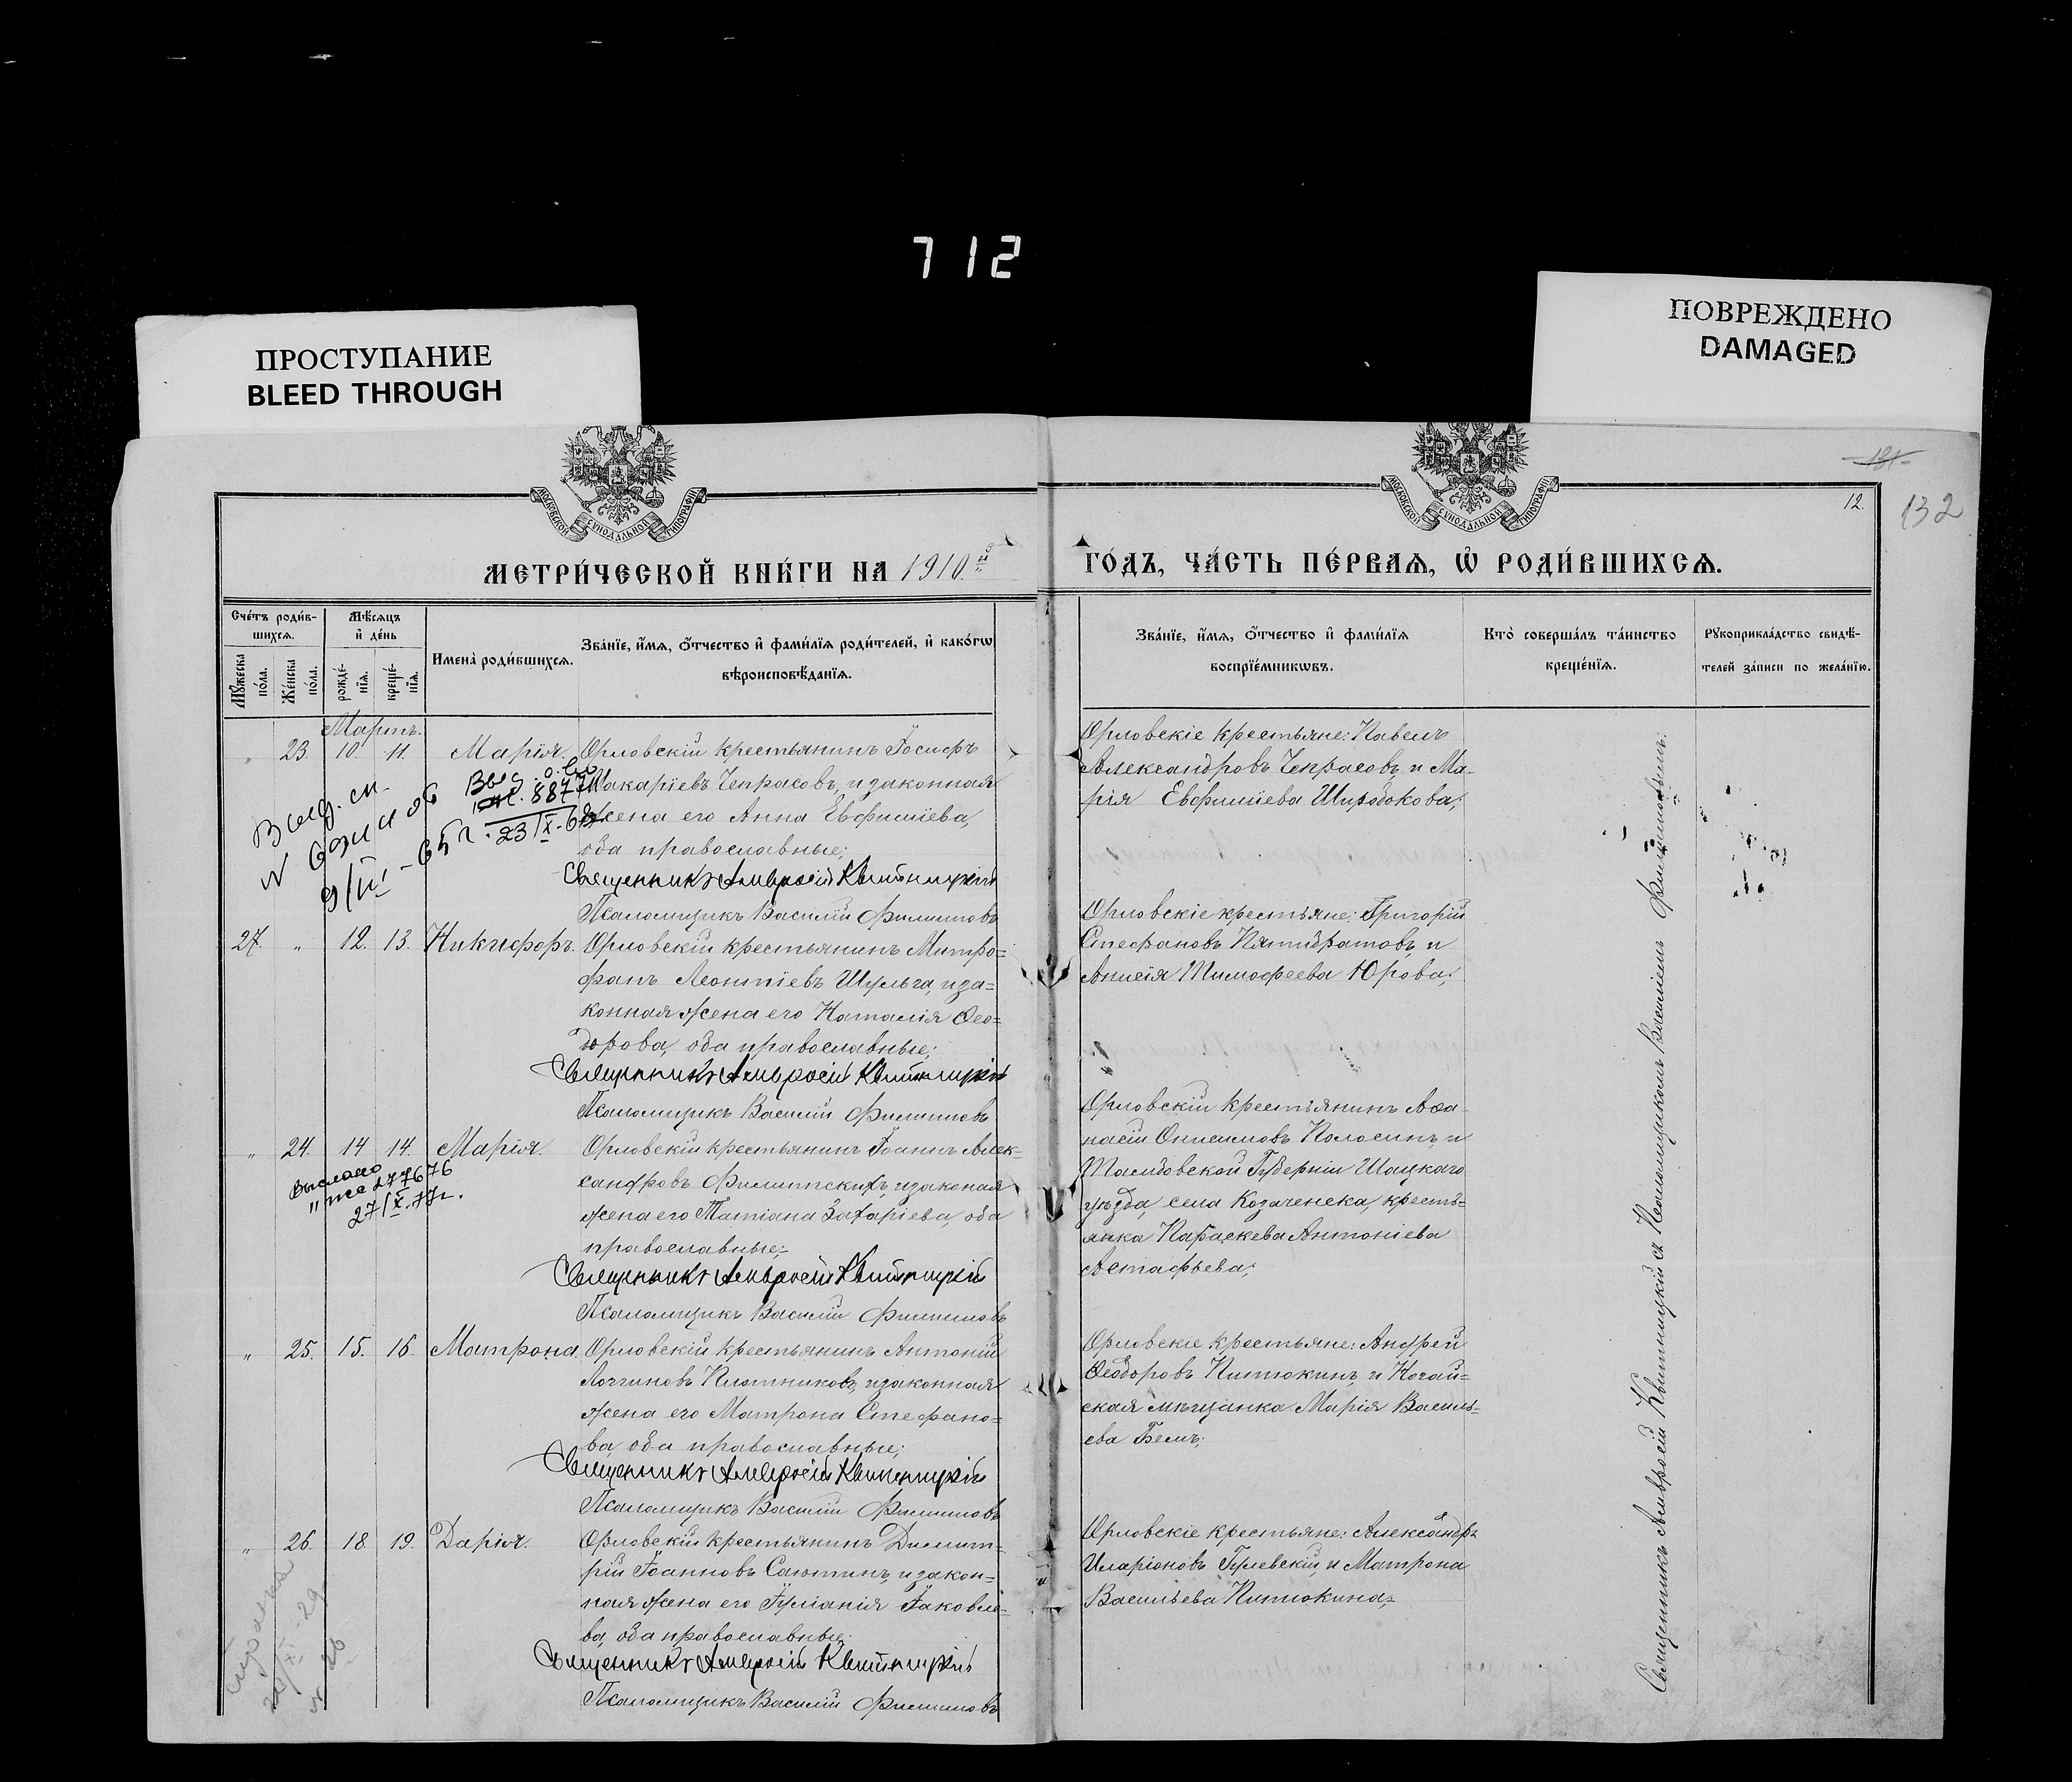 712
ПРОСТУПАНИЕ
BLEED THROUGH
ПОВРЕЖДЕНО
DAMAGED
МОСКОВСКОЙ СУНОДАЛЬНОЙ ТИПОГРАФІИ
МОСКОВСКОЙ СУНОДАЛЬНОЙ ТИПОГРАФІИ
131
12.
132
МЕТРИ́ЧЕСКОЙ КНИ́ГИ НА 1910.й
ГО́ДЪ, ЧА́СТЬ ПЕ́РВАѦ, Ѡ҆ РОДИ́ВШИХСѦ.
Сче́тъ роди́в-
шихсѧ.
Мꙋ́жеска по́ла.
Же́нска по́ла.
Мѣ́сѧцъ
и҆ де́нь
рожде́-
нїѧ.
креще́-
нїѧ.
Имена̀ роди́вшихсѧ.
Зва́нїе, и҆́мѧ, ѻ҆́тчество и҆ фами́лїѧ роди́телей, и҆ како́гѡ
вѣроисповѣ́данїѧ.
Зва́нїе, и҆́мѧ, ѻ҆́тчество и҆ фами́лїѧ
воспрїе́мникѡвъ.
Кто̀ соверша́лъ та́инство
креще́нїѧ.
Рꙋкоприкла́дство свидѣ́-
телей за́писи по жела́нїю.
Мартъ.
„ 23. 10. 11. Марія. Орловскій крестьянинъ Іосифъ
Макаріевъ Чепрасовъ, и законная
жена его Анна Евфиміева,
оба православные;
Священникъ Амвросій Квитницкій
Псаломщикъ Василій Филипповъ
Орловскіе крестьяне: Павелъ
Александровъ Чепрасовъ, и Ма-
рія Евфиміева Широбокова;
Выд. сп.
9/III - 65 г.
23/X-
27. „ 12. 13. Никифоръ. Орловскій крестьянинъ Митро=
фанъ Леонтіевъ Шульга, и за=
конная жена его Наталія Ѳео=
дорова, оба православные;
Священникъ Амвросій Квитницкій
Псаломщикъ Василій Филипповъ
Орловскіе крестьяне: Григорій
Стефановъ Пятибратовъ, и
Анисія Тимофеева Юрова;
„ 24. 14 14. Марія. Орловскій крестьянинъ Іоаннъ Алек=
сандровъ Филипскихъ, и законая
жена его Татіана Захаріева, оба
православные;
Священникъ Амвросій Квитницкій
Псаломщикъ Василій Филипповъ
Выслано
277676
27/X.77г.
Орловскій крестьянинъ Аѳа-
насій Онисимовъ Полосинъ, и
Тамбовской Губерніи Шацкаго
уѣзда, села Козаченска, кресть=
янка Параскева Антоніева
Астафьева;
„ 25. 15. 16. Матрона. Орловскій крестьянинъ Антоній
Логгиновъ Плотниковъ, и законная
жена его Матрона Стефано=
ва, оба православные;
Священникъ Амвросій Квитницкій
Псаломщикъ Василій Филипповъ
Орловскіе крестьяне: Андрей
Ѳеодоровъ Питюкинъ, и Ногай=
ская мѣщанка Марія Василь=
ева Бемъ;
„ 26. 18 19. Дарія. Орловскій крестьянинъ Димит=
рій Іоанновъ Саютинъ, и закон=
ная жена его Іуліанія Іаковле=
ва, оба православные;
Священникъ Амвросій Квитницкій
Псаломщикъ Василій Филипповъ
Орловскіе крестьяне: Александръ
Иларіоновъ Гулевскій, и Матрона
Васильева Питюкина;
Священникъ Амвросій Квитницкій съ Псаломщикомъ Василіемъ Филипповымъ.